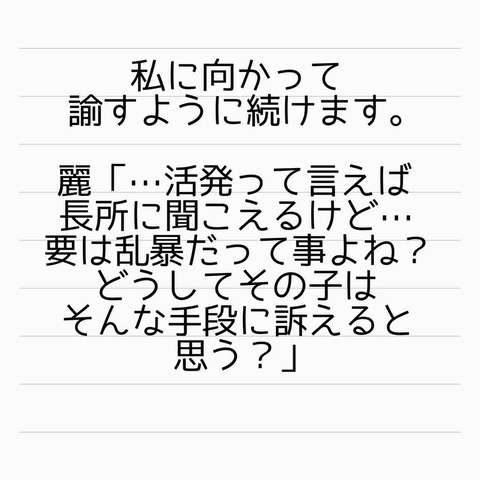 私に向かって
諭すように続けます。
麗「…活発って言えば
長所に聞こえるけど…
要は乱暴だって事よね？
どうしてその子は
そんな手段に訴えると
思う？」